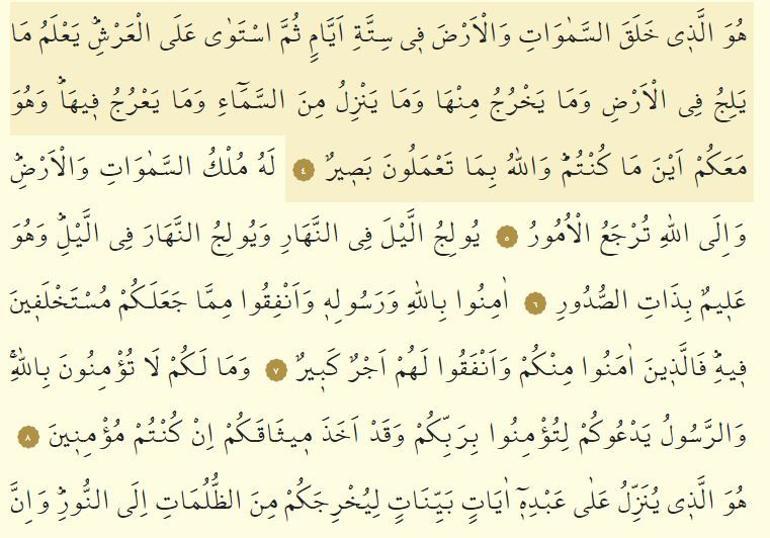 هُوَ الَّذ۪ي خَلَقَ السَّمٰوَاتِ وَالْاَرْضَ ف۪ي سِتَّةِ اَيَّامٍ ثُمَّ اسْتَوٰى عَلَى الْعَرْشِۜ يَعْلَمُ مَا
يَلِجُ فِي الْاَرْضِ وَمَا يَخْرُجُ مِنْهَا وَمَا يَنْزِلُ مِنَ السَّمَٓاءِ وَمَا يَعْرُجُ ف۪يهَاۜ وَهُوَ
مَعَكُمْ اَيْنَ مَا كُنْتُمْۜ وَاللّٰهُ بِمَا تَعْمَلُونَ بَص۪يرٌ ٤ لَهُ مُلْكُ السَّمٰوَاتِ وَالْاَرْضِۜ
وَاِلَى اللّٰهِ تُرْجَعُ الْاُمُورُ ٥ يُولِجُ الَّيْلَ فِي النَّهَارِ وَيُولِجُ النَّهَارَ فِي الَّيْلِۜ وَهُوَ
عَل۪يمٌ بِذَاتِ الصُّدُورِ ٦ اٰمِنُوا بِاللّٰهِ وَرَسُولِه۪ وَاَنْفِقُوا مِمَّا جَعَلَكُمْ مُسْتَخْلَف۪ينَ
ف۪يهِۜ فَالَّذ۪ينَ اٰمَنُوا مِنْكُمْ وَاَنْفَقُوا لَهُمْ اَجْرٌ كَب۪يرٌ ٧ وَمَا لَكُمْ لَا تُؤْمِنُونَ بِاللّٰهِۚ
وَالرَّسُولُ يَدْعُوكُمْ لِتُؤْمِنُوا بِرَبِّكُمْ وَقَدْ اَخَذَ م۪يثَاقَكُمْ اِنْ كُنْتُمْ مُؤْمِن۪ينَ ٨
هُوَ الَّذ۪ي يُنَزِّلُ عَلٰى عَبْدِه۪ٓ اٰيَاتٍ بَيِّنَاتٍ لِيُخْرِجَكُمْ مِنَ الظُّلُمَاتِ اِلَى النُّورِۜ وَاِنَّ